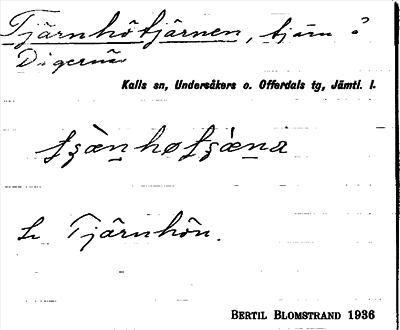 Tjärnhötjärnen, tjärn å
Digernäs
Kalls sn, Undersåkers o. Offerdals tg, Jämtl. l.
Tjärnhön.
BERTIL BLOMSTRAND 1936